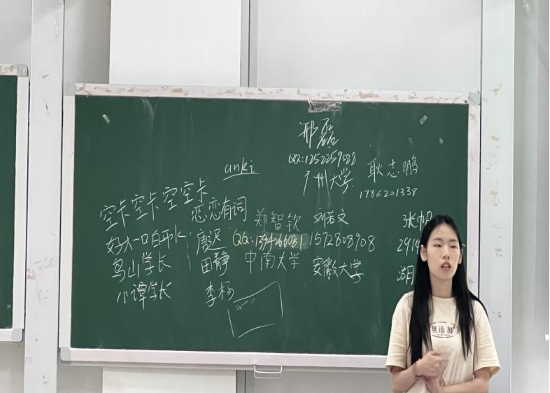 邢磊
QQ:1252259088
广州大学
耿志鹏
anki
空卡空卡空空卡
恋恋有词
好大一口白耶
鸟山学长
小谭学长
唐迟
田静
李杨
郑智钦
QQ:
中南大学
文
1572803908
安徽大学
张
2914
湖